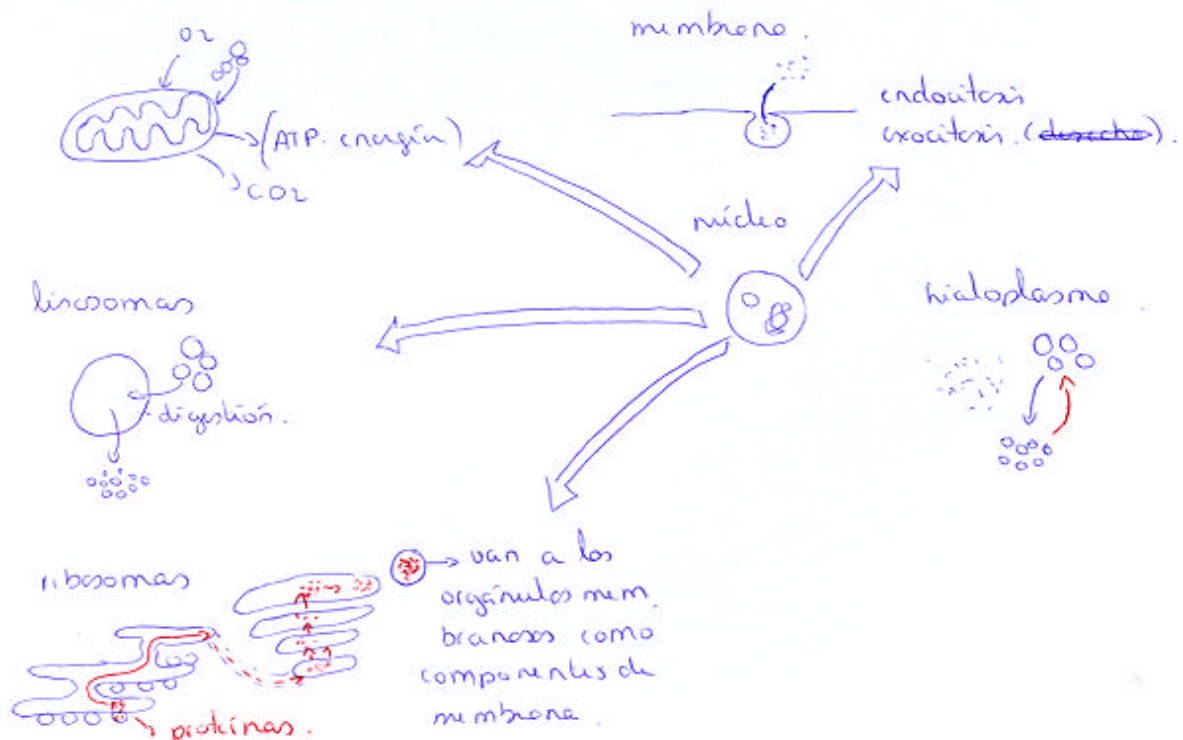 O2
(ATP. energía)
CO2
membrana.
endocitosis
exocitosis. (desecho).
núcleo
lisosomas
digestión.
hialoplasma.
ribosomas
proteínas.
van a los
orgánulos mem.
branosos como
componentes de
membrana.